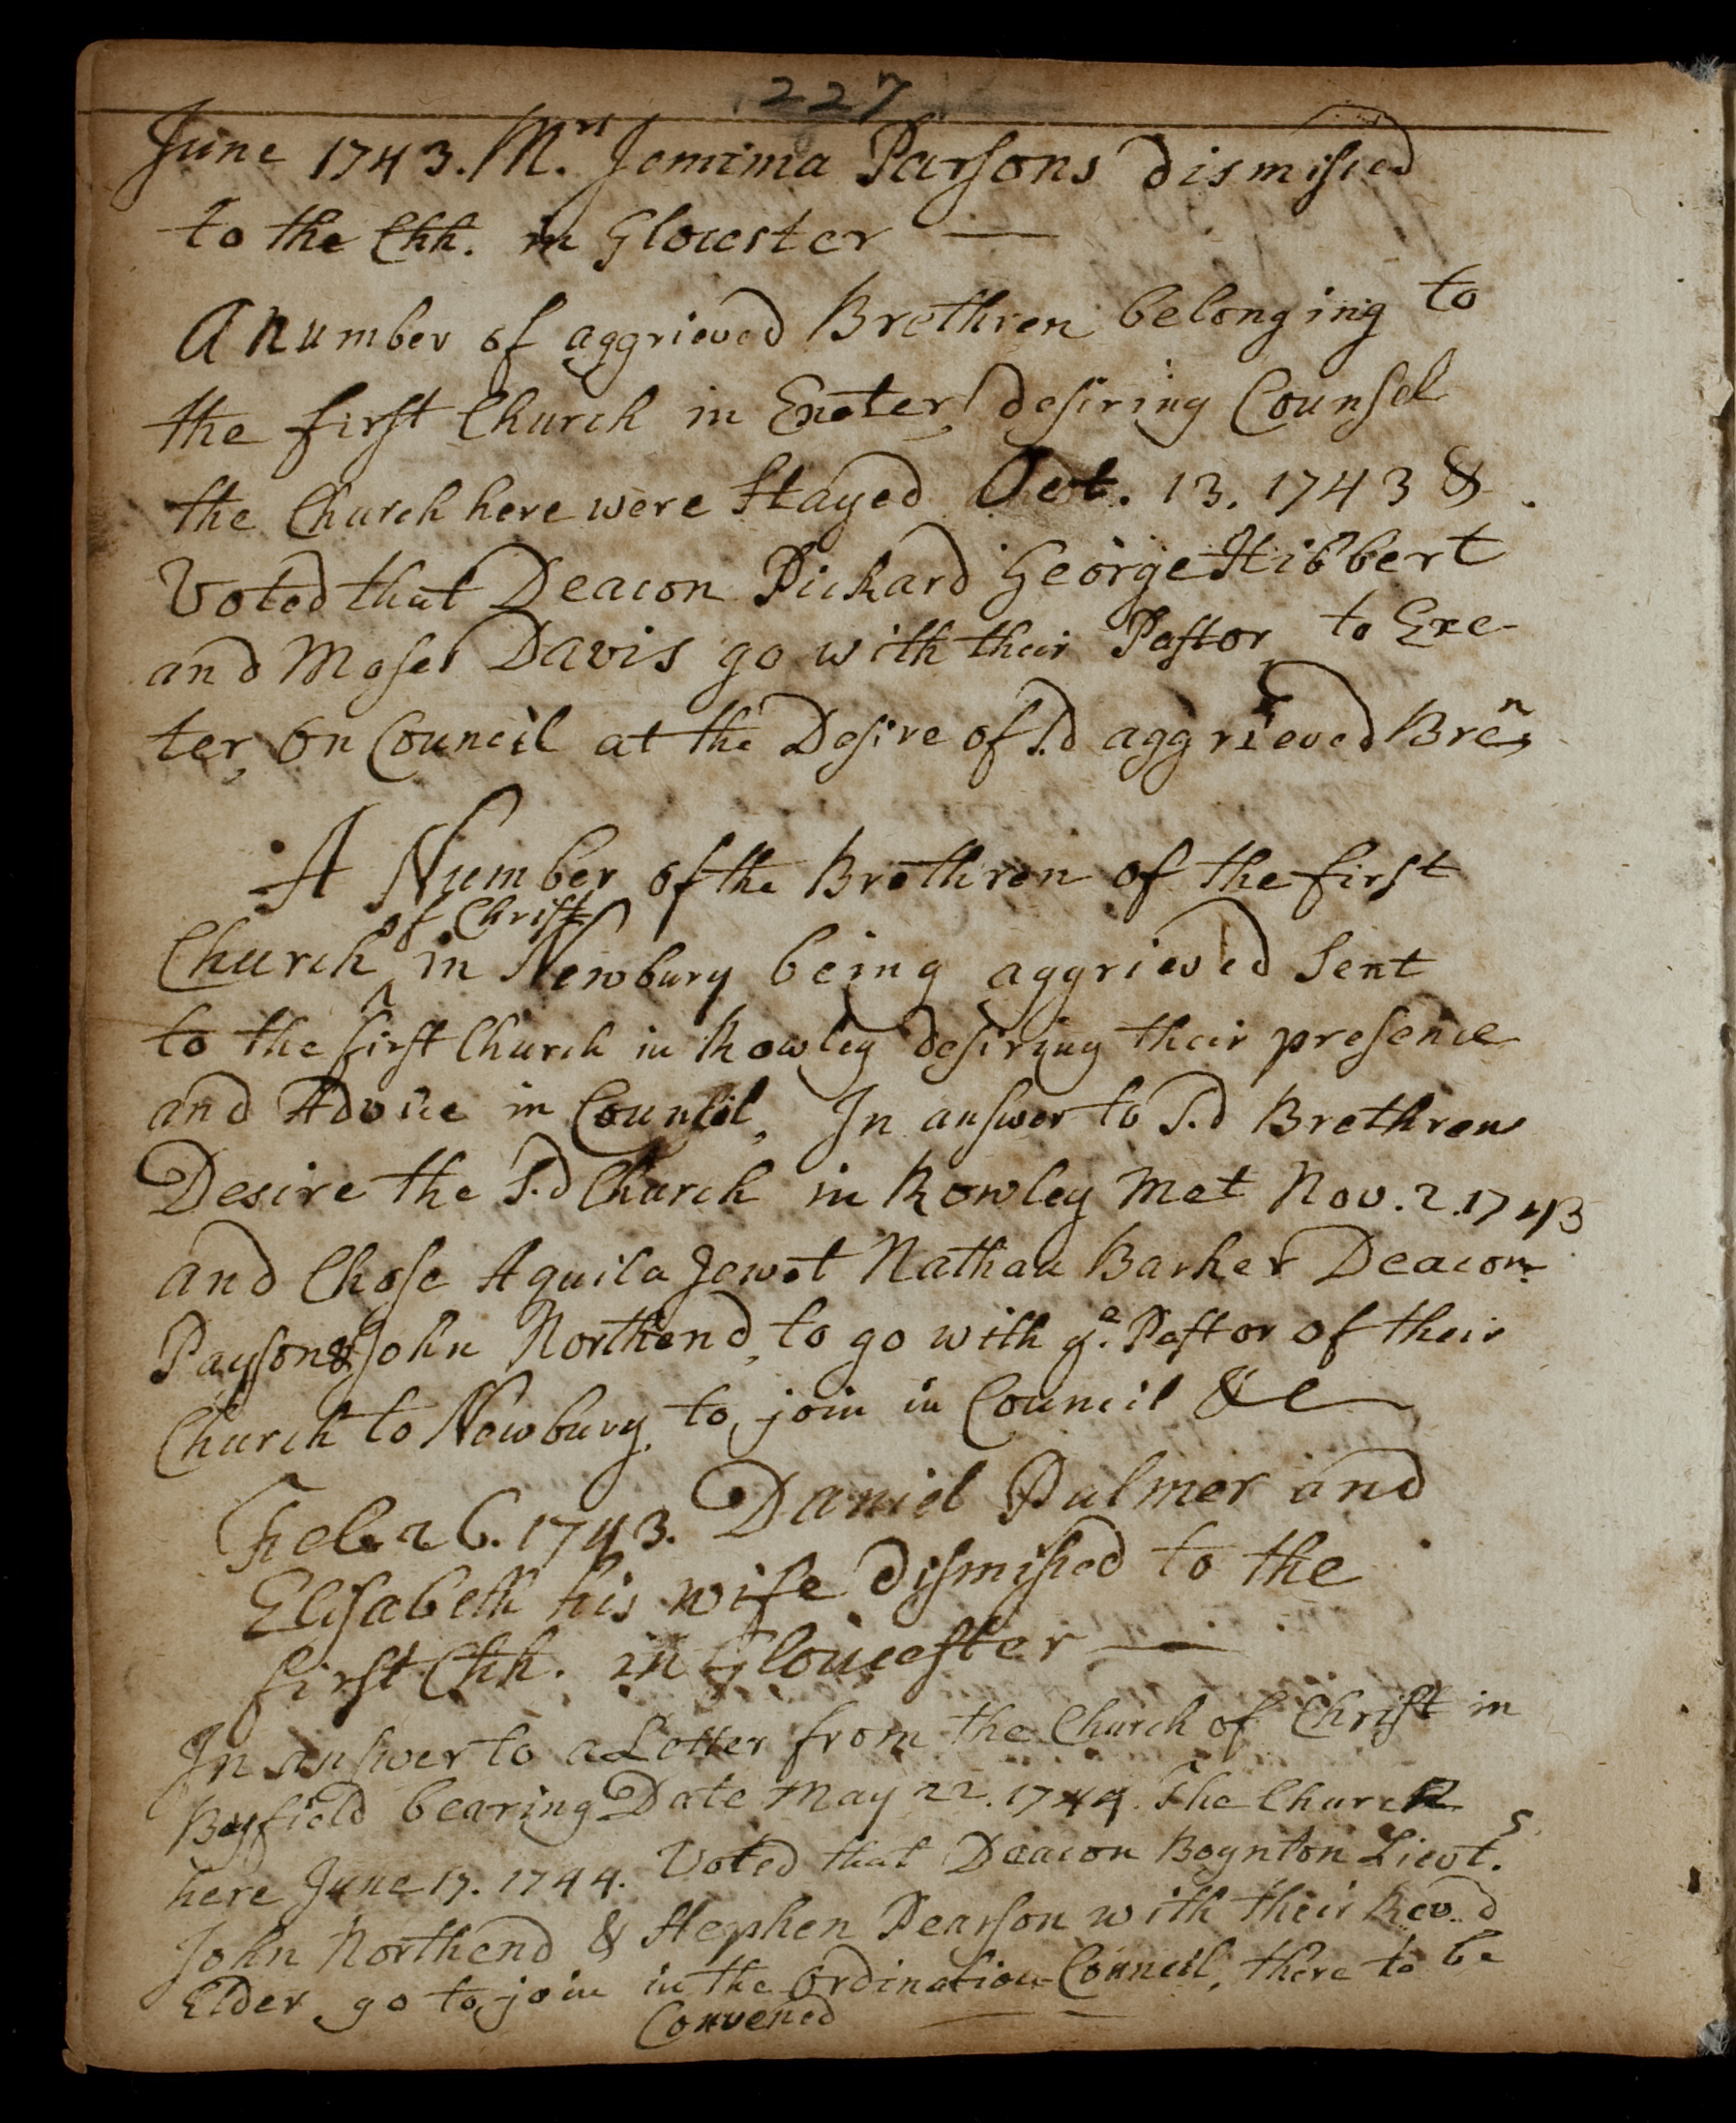 227
June 1743. Mrs. Jemima Parsons dismissed
to the Chh. in Gloucster —
A Number of aggrieved Brethren belonging to
the first Church in Exeter, desiring Counsel
the Church here were stayed Oct. 13. 1743 &
Voted that Deacon Pickard George Hibbert
and Moses Davis go with their Pastor to Exe-
ter, on Council at the Desire of s.d aggrieved Bren,
A Number of the Brethren of the first
Church ^ of Christ in Newbury being aggrieved sent
to the first Church in Rowley desiring their presence
and Advice in Council, In answer to s.d Brethren
Desire the s.d Church in Rowley Met Nov. 2. 1743
and Chose Aquila Jewet Nathan Barker Deacon
Payson & John Northend, to go with ye. Pastor of their
Church to Newbury, to join in Council &c
Feb. 26. 1743. Daniel Palmer and
Elisabeth his wife dismissed to the
first Chh. in Gloucester —
In answer to a Letter from the Church of Christ in
Byfield bearing Date May 22. 1744. The Church
here June 17. 1744. Voted that Deacon Boynton Lievt.s
John Northend & Stephen Pearson with their Rev.d
Elder, go to join in the Ordination-Council, there to be
Convened — —